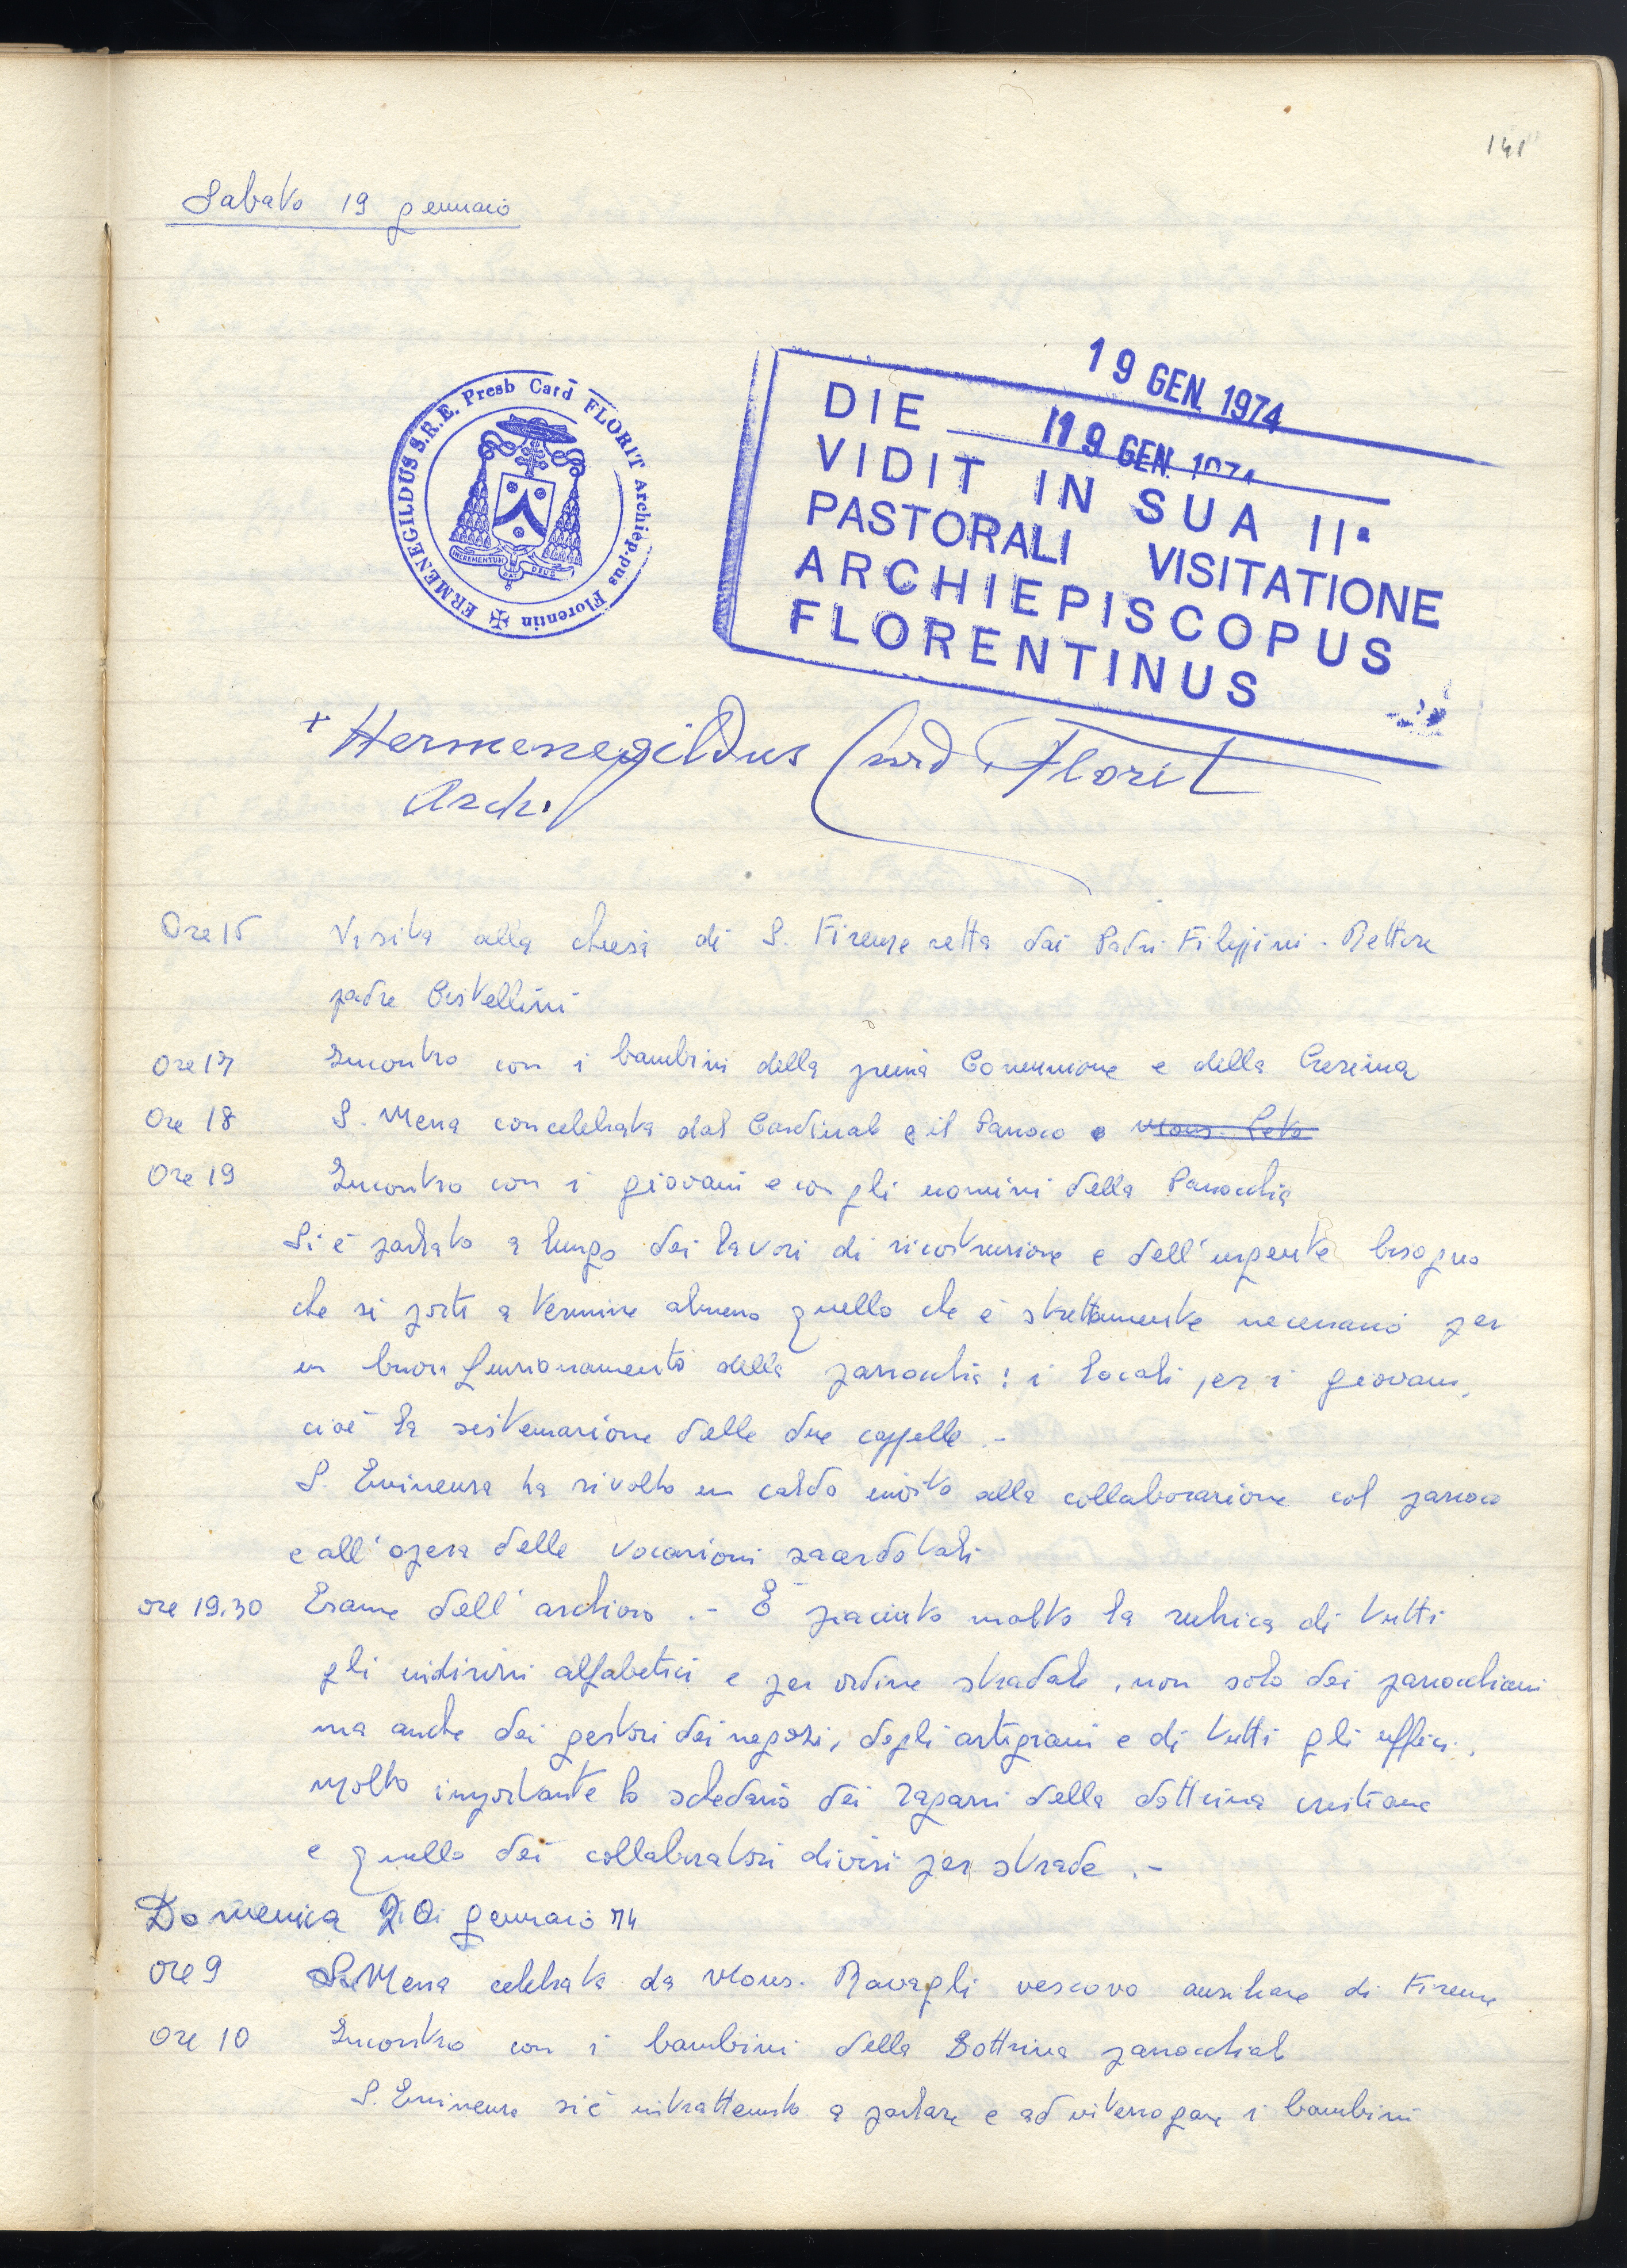 141
Sabato 19 gennaio
19 GEN. 1974
DIE 19 GEN. 1974
VIDIT IN SUA IIa
PASTORALI VISITATIONE
ARCHIEPISCOPUS
FLORENTINUS
✠ ERMENEGILDUS S.R.E. Presb Card FLORIT Archiep.pus Florentin
INCREMENTUM DAT DEUS
+ Hermenegildus Card Florit
Arch.
Ore 15 Visita alla chiesa di S. Firenze retta dai Padri Filippini. Rettore
padre Cistellini
Ore 17 Incontro con i bambini della prima Comunione e della Cresima
Ore 18 S. Messa concelebrata dal Cardinale e il Parroco e Mons.
Ore 19 Incontro con i giovani e con gli uomini della Parrocchia
Si è parlato a lungo dei lavori di ricostruzione e dell'urgente bisogno
che si porti a termine almeno quello che è strettamente necessario per
un buon funzionamento della parrocchia: i locali per i giovani,
cioè la sistemazione delle due cappelle.-
S. Eminenza ha rivolto un caldo invito alla collaborazione col parroco
e all'opera delle vocazioni sacerdotali
ore 19.30 Esame dell'archivio.- È piaciuta molto la rubrica di tutti
gli indirizzi alfabetici e per ordine stradale, non solo dei parrocchiani
ma anche dei gestori dei negozi, degli artigiani e di tutti gli uffici.
Molto importante lo schedario dei ragazzi della dottrina cristiana
e quello dei collaboratori divisi per strade.-
Domenica 20 gennaio 74
Ore 9 S. Messa celebrata da Mons. Ravagli vescovo ausiliare di Firenze
Ore 10 Incontro con i bambini della Dottrina parrocchiale
S. Eminenza si è intrattenuto a parlare e ad interrogare i bambini